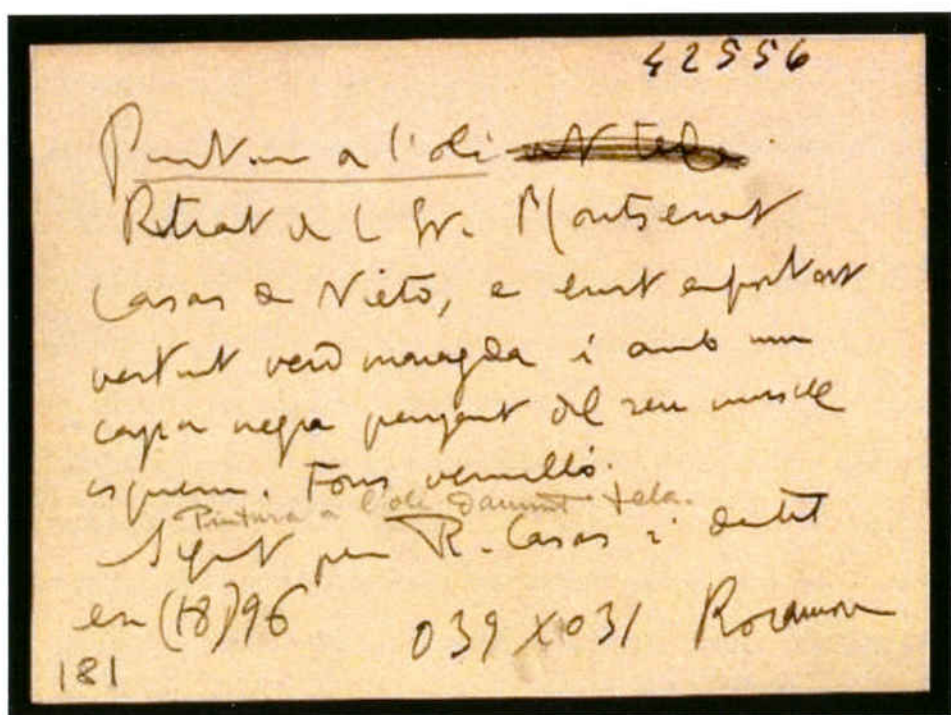 42556
Pintura a l'oli
Retrat de la Sra. Montserrat
Casas de Nieto,
vestit verd maragda i amb una
capa negra penjant del seu muscle
esquerre. Fons vermelló.
Pintura a l'oli damunt tela.
Signat per R. Casas i datat
en (18)96
039 X 031 Rocamora
181